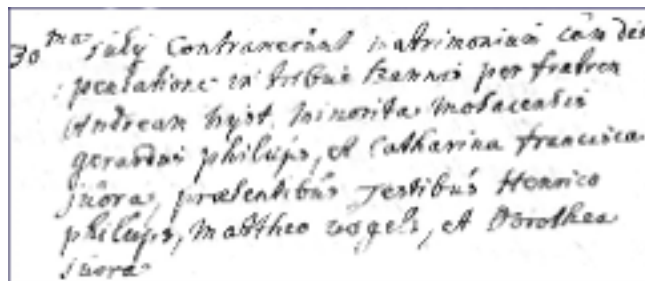 30ma julij Contraxerunt matrimonium cum dis
pensatione in tribus bannis per fratrem
Andream hyst. minorita mosacensis
gerardus philips, et Catharina francisca
juora, præsentibus Testibus Henrico
philips, Mattheo vogels, et Dorothea
juora